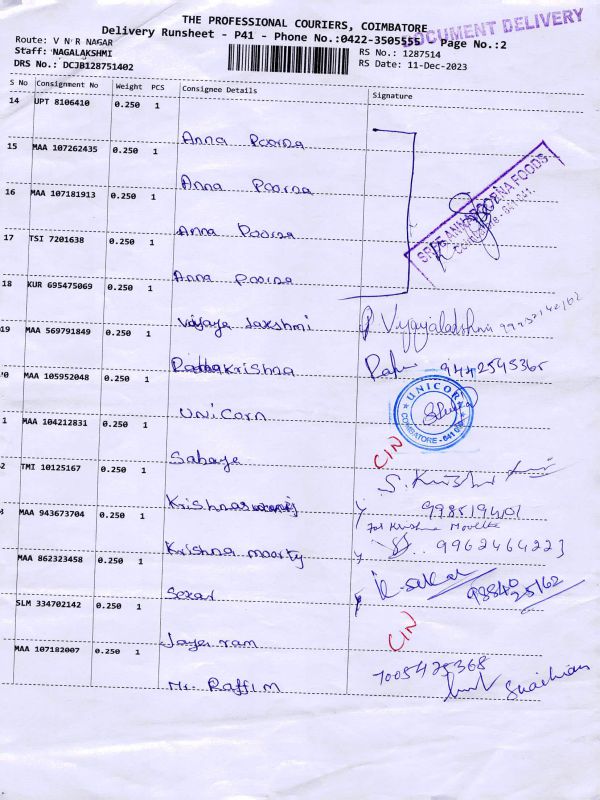 THE PROFESSIONAL COURIERS, COIMBATORE
DOCUMENT DELIVERY
Delivery Runsheet - P41 - Phone No.:0422-3505555 Page No.:2
Route: V N R NAGAR
Staff: NAGALAKSHMI
RS No.: 1287514
DRS No.: DCJB128751402
RS Date: 11-Dec-2023
S No Consignment No Weight PCS Consignee Details Signature
14 UPT 8106410 0.250 1
Anna Poorna
15 MAA 107262435 0.250 1
Anna Poorna
16 MAA 107181913 0.250 1
Anna Poorna
SREE ANNAPOORNA FOODS.
17 TSI 7201638 0.250 1
Anna Poorna
18 KUR 695475069 0.250 1
Vijaya Lakshmi P Vijayalakshmi
19 MAA 569791849 0.250 1
RadhaKrishna 9442545365
0 MAA 105952048 0.250 1
Unicorn
UNICORN
COIMBATORE - 641
1 MAA 104212831 0.250 1
CIN
2 TMI 10125167 0.250 1
S. Krishna
MAA 943673704 0.250 1
Krishna moorty 9962464223
MAA 862323458 0.250 1
Sekar K-sekar 98840 25162
SLM 334702142 0.250 1
CIN
Jaya ram
MAA 107182007 0.250 1
7005425368
Mr. Raffi M